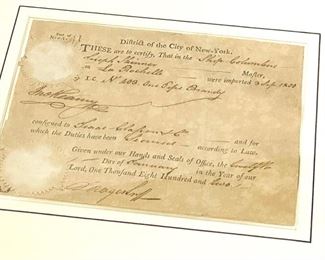 Port of
New-York
District of the City of New-York.
THESE are to certify, That in the Ship Columbus
Joseph Skinner Master,
La Rochelle were imported 3 Sep 1801
I.C. No 203. One Pipe Brandy
consigned to Isaac Clason & Co and for
which the Duties have been Secured according to Law.
Given under our Hands and Seals of Office, the Twelfth
Day of January in the Year of our
Lord, One Thousand Eight Hundred and two.